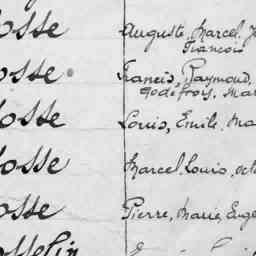 osse Auguste, Marcel, J
François
osse Francis, Raymond,
Godefroy, Mar
osse Louis, Emile, Ma
osse Marcel, Louis, octa
osse Pierre, Marie, Euge
osselin